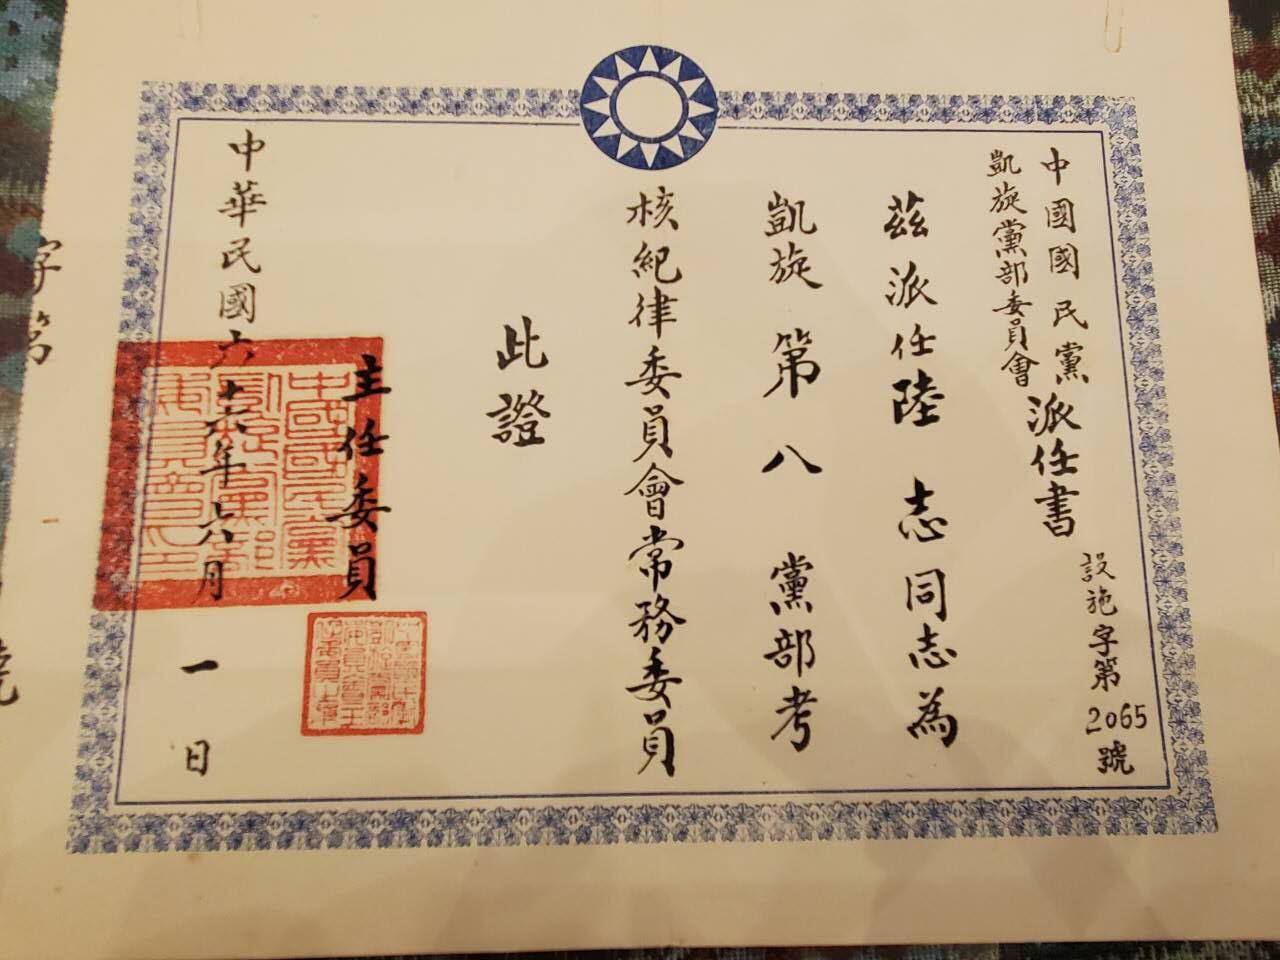 中國國民黨
凱旋黨部委員會
派任書
設施字第2065號
茲派任陸 志同志為
凱旋第八黨部考
核紀律委員會常務委員
此證
主任委員
中國國民黨
凱旋黨部
委員會印
中華民國六十六年六月一日
字第 號